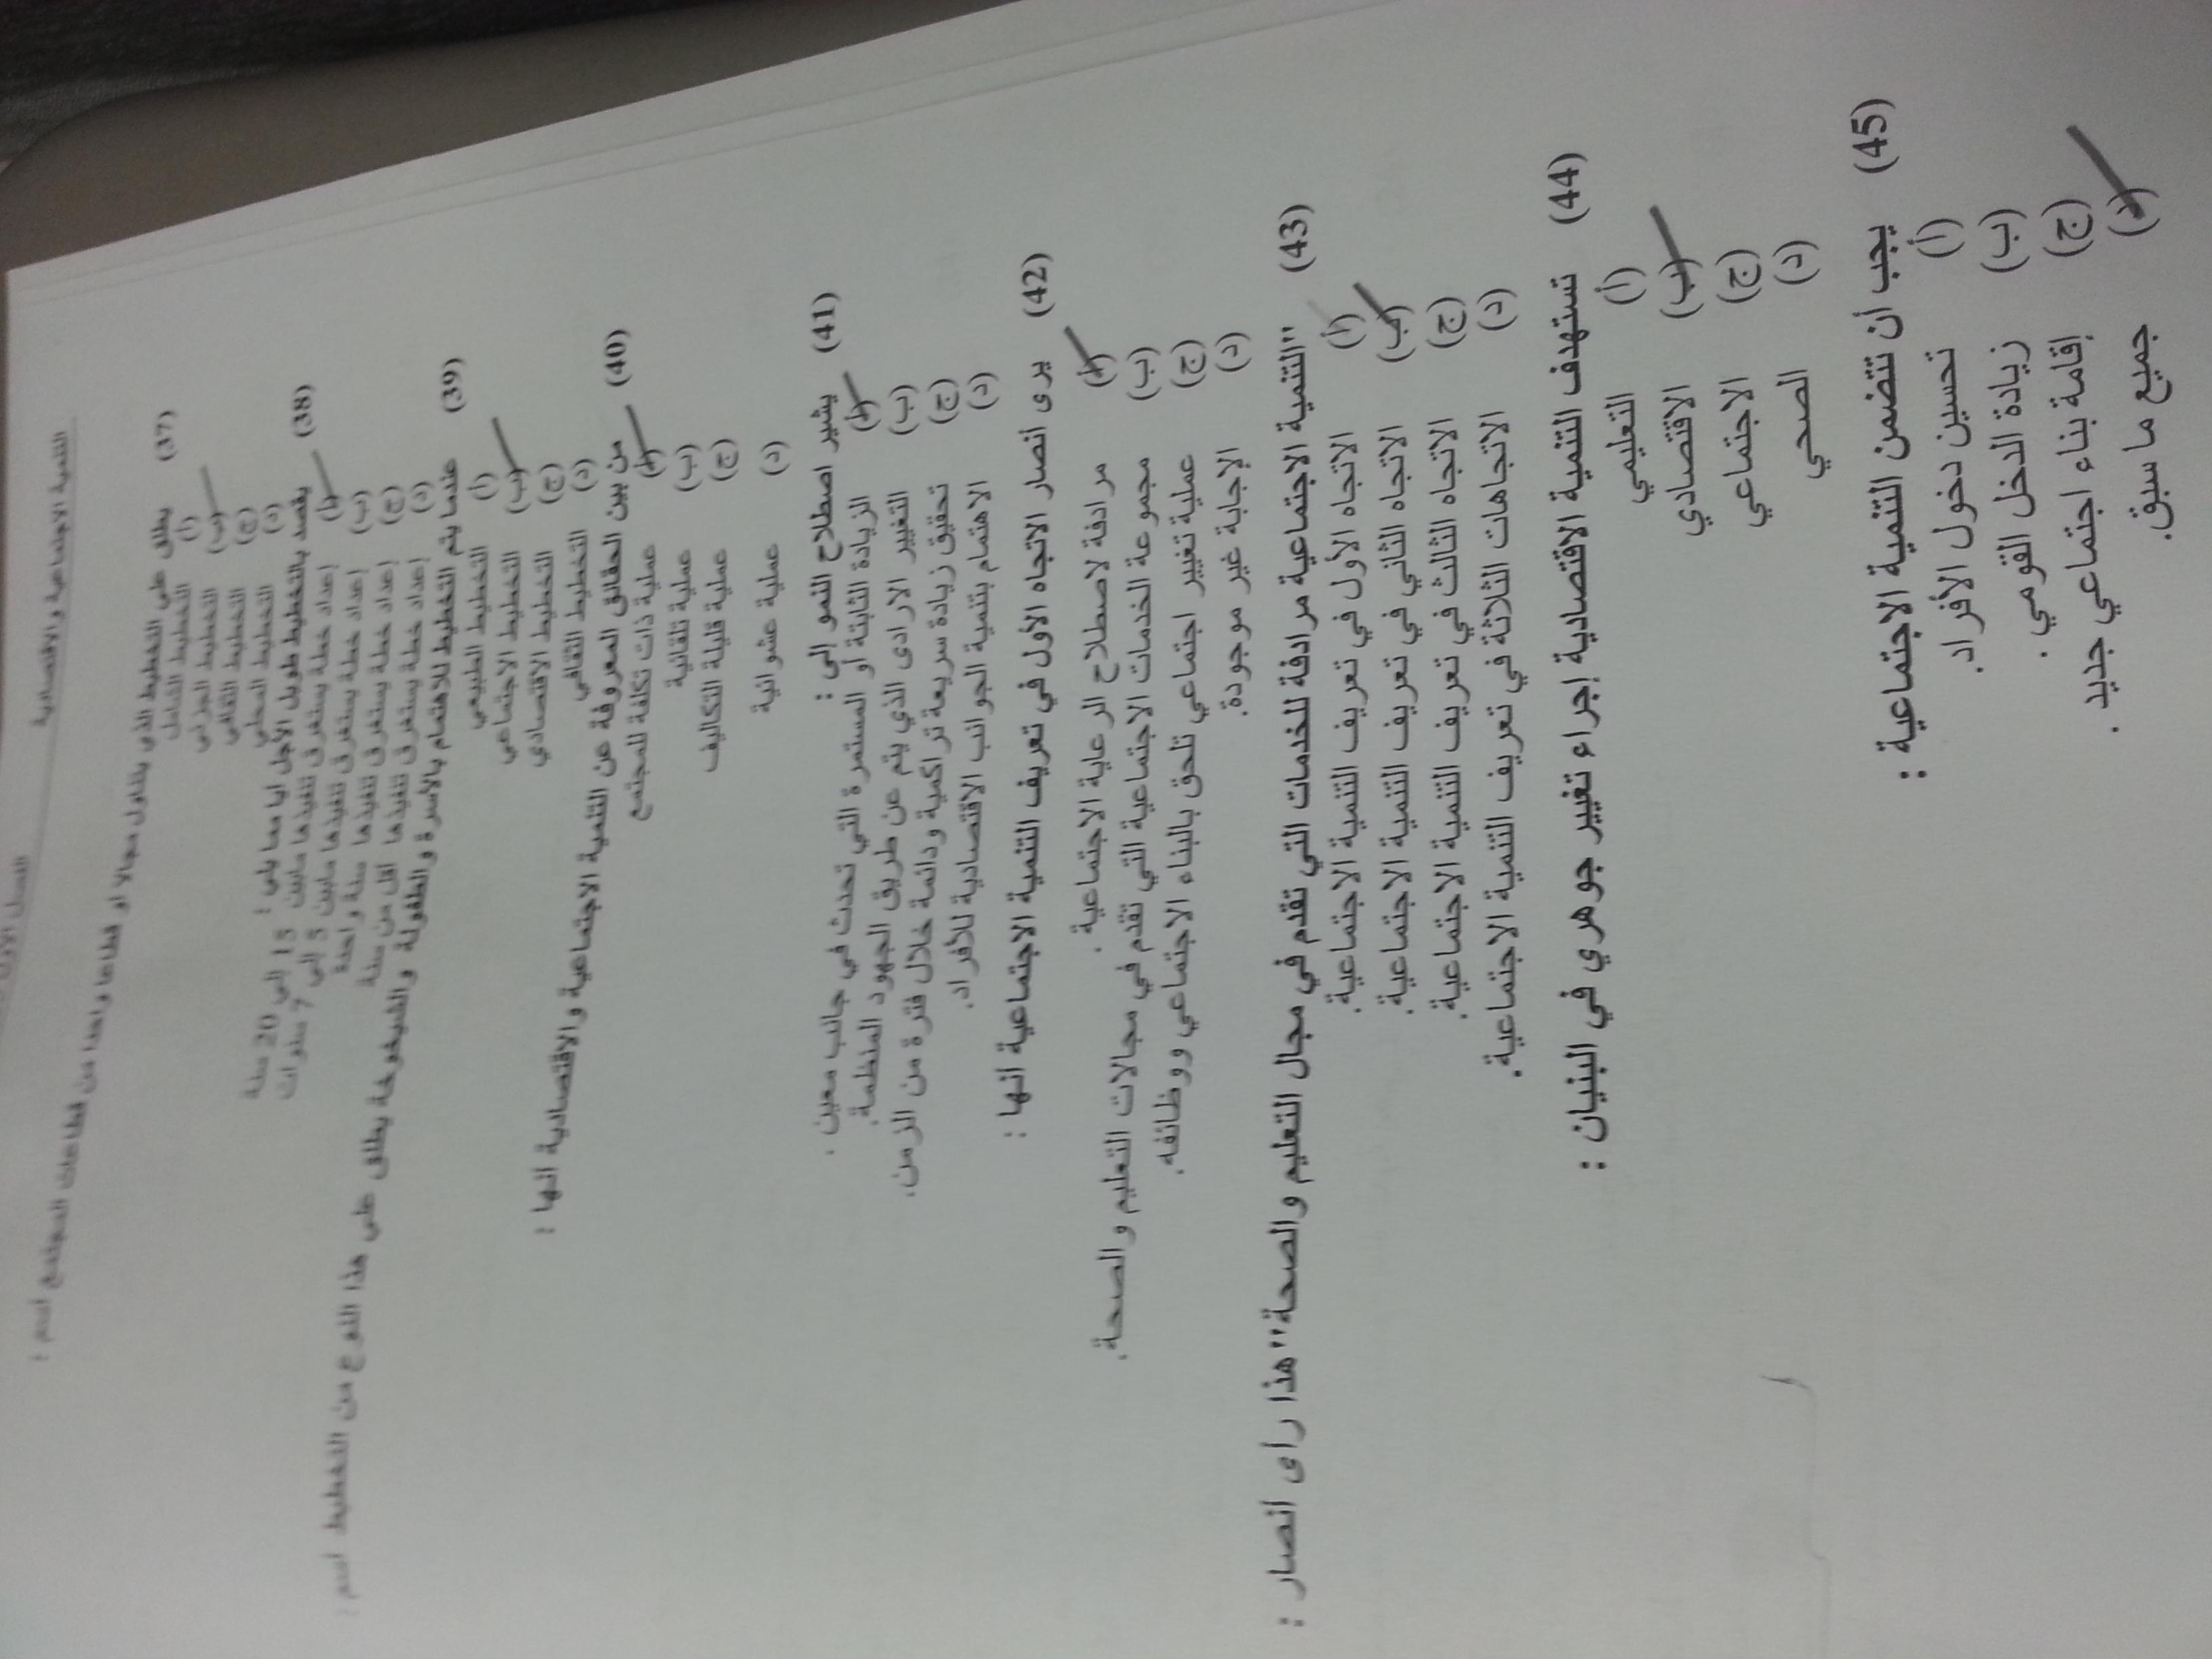 التنمية الاجتماعية والاقتصادية
الفصل الأول
(37) يطلق على التخطيط الذي يتناول مجالا او قطاعا واحدا من قطاعات المجتمع اسم :
(أ) التخطيط الشامل
(ب) التخطيط الجزئي
(ج) التخطيط الثقافي
(د) التخطيط المحلي
(38) يقصد بالتخطيط طويل الأجل ايا مما يلي :
(أ) إعداد خطة يستغرق تنفيذها مابين 15 إلى 20 سنة
(ب) إعداد خطة يستغرق تنفيذها مابين 5 إلى 7 سنوات
(ج) إعداد خطة يستغرق تنفيذها سنة واحدة
(د) إعداد خطة يستغرق تنفيذها أقل من سنة
(39) عندما يتم التخطيط للاهتمام بالأسرة والطفولة والشيخوخة يطلق على هذا النوع من التخطيط اسم :
(أ) التخطيط الطبيعي
(ب) التخطيط الاجتماعي
(ج) التخطيط الاقتصادي
(د) التخطيط الثقافي
(40) من بين الحقائق المعروفة عن التنمية الاجتماعية والاقتصادية انها :
(أ) عملية ذات تكلفة للمجتمع
(ب) عملية تلقائية
(ج) عملية قليلة التكاليف
(د) عملية عشوائية
(41) يشير اصطلاح النمو إلى :
(أ) الزيادة الثابتة أو المستمرة التي تحدث في جانب معين .
(ب) التغيير الارادى الذي يتم عن طريق الجهود المنظمة.
(ج) تحقيق زيادة سريعة تراكمية ودائمة خلال فترة من الزمن.
(د) الاهتمام بتنمية الجوانب الاقتصادية للأفراد.
(42) يرى أنصار الاتجاه الأول في تعريف التنمية الاجتماعية أنها :
(أ) مرادفة لاصطلاح الرعاية الاجتماعية .
(ب) مجموعة الخدمات الاجتماعية التي تقدم في مجالات التعليم والصحة.
(ج) عملية تغيير اجتماعي تلحق بالبناء الاجتماعي ووظائفه.
(د) الإجابة غير موجودة.
(43) "التنمية الاجتماعية مرادفة للخدمات التي تقدم في مجال التعليم والصحة" هذا راى أنصار :
(أ) الاتجاه الأول في تعريف التنمية الاجتماعية.
(ب) الاتجاه الثاني في تعريف التنمية الاجتماعية.
(ج) الاتجاه الثالث في تعريف التنمية الاجتماعية.
(د) الاتجاهات الثلاثة في تعريف التنمية الاجتماعية.
(44) تستهدف التنمية الاقتصادية إجراء تغيير جوهري في البنيان :
(أ) التعليمي
(ب) الاقتصادي
(ج) الاجتماعي
(د) الصحي
(45) يجب أن تتضمن التنمية الاجتماعية :
(أ) تحسين دخول الأفراد.
(ب) زيادة الدخل القومي .
(ج) إقامة بناء اجتماعي جديد .
(د) جميع ما سبق.